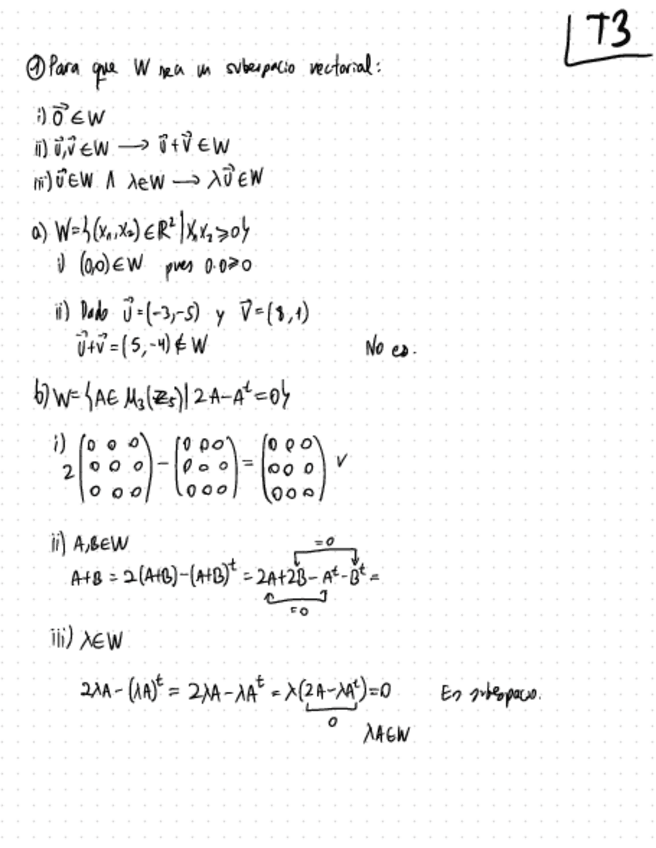 T3
① Para que W sea un subespacio vectorial:
i) 0⃗ ∈ W
ii) u⃗,v⃗ ∈ W → u⃗+v⃗ ∈ W
iii) u⃗ ∈ W ∧ λ∈W → λu⃗ ∈ W
a) W={(x₁,x₂) ∈ R² | x₁x₂ ⩾ 0}
i) (0,0) ∈ W pues 0·0 ⩾ 0
ii) Dado u⃗=(-3,-5) y v⃗=(8,1)
u⃗+v⃗=(5,-4) ∉ W No es.
b) W={A∈ M₃(Z₅) | 2A-Aᵗ=0}
i) 2 (0 0 0 - (0 0 0 = (0 0 0
0 0 0 0 0 0 0 0 0 ✓
0 0 0) 0 0 0) 0 0 0)
ii) A,B∈W
=0
A+B = 2(A+B)-(A+B)ᵗ = 2A+2B-Aᵗ-Bᵗ =
=0
iii) λ∈W
2λA-(λA)ᵗ = 2λA-λAᵗ = λ(2A-λAᵗ)=0 Es subespacio.
0
λA∈W